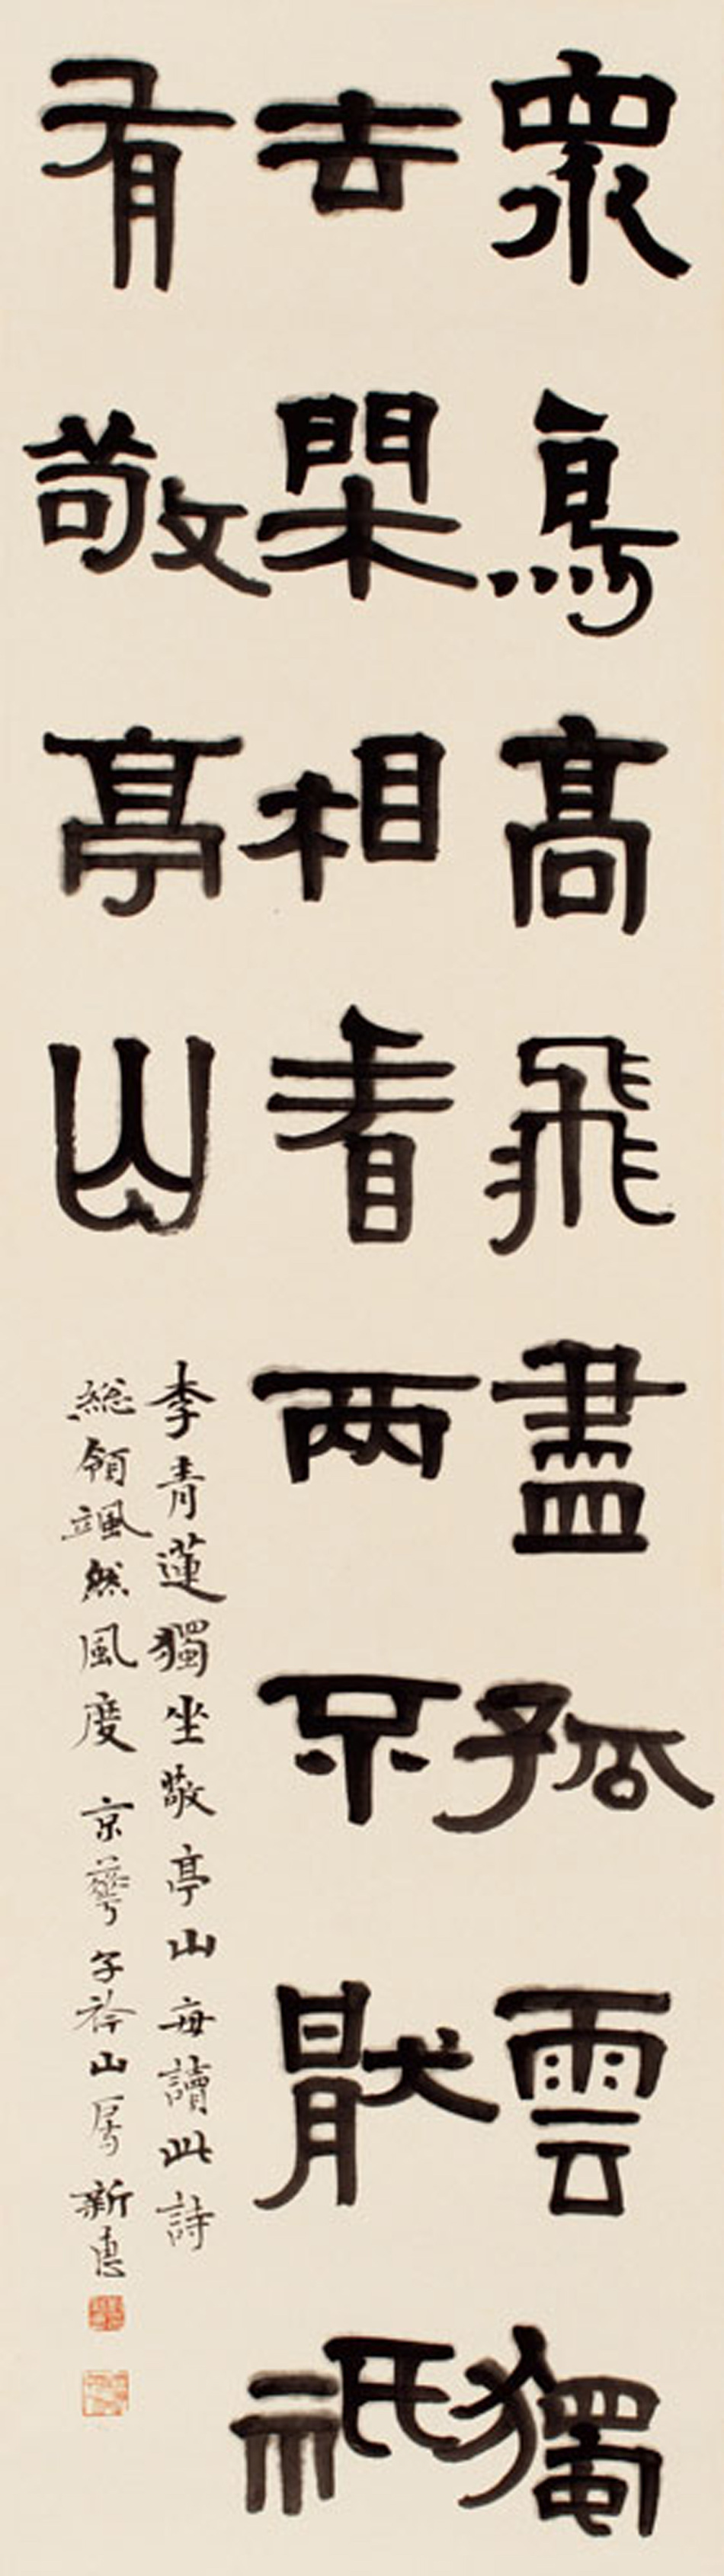 眾鳥高飛盡孤雲獨
去閑相看兩不厭祇
有敬亭山
李青蓮獨坐敬亭山每讀此詩
總領颯然風度京華子衿山房新惠